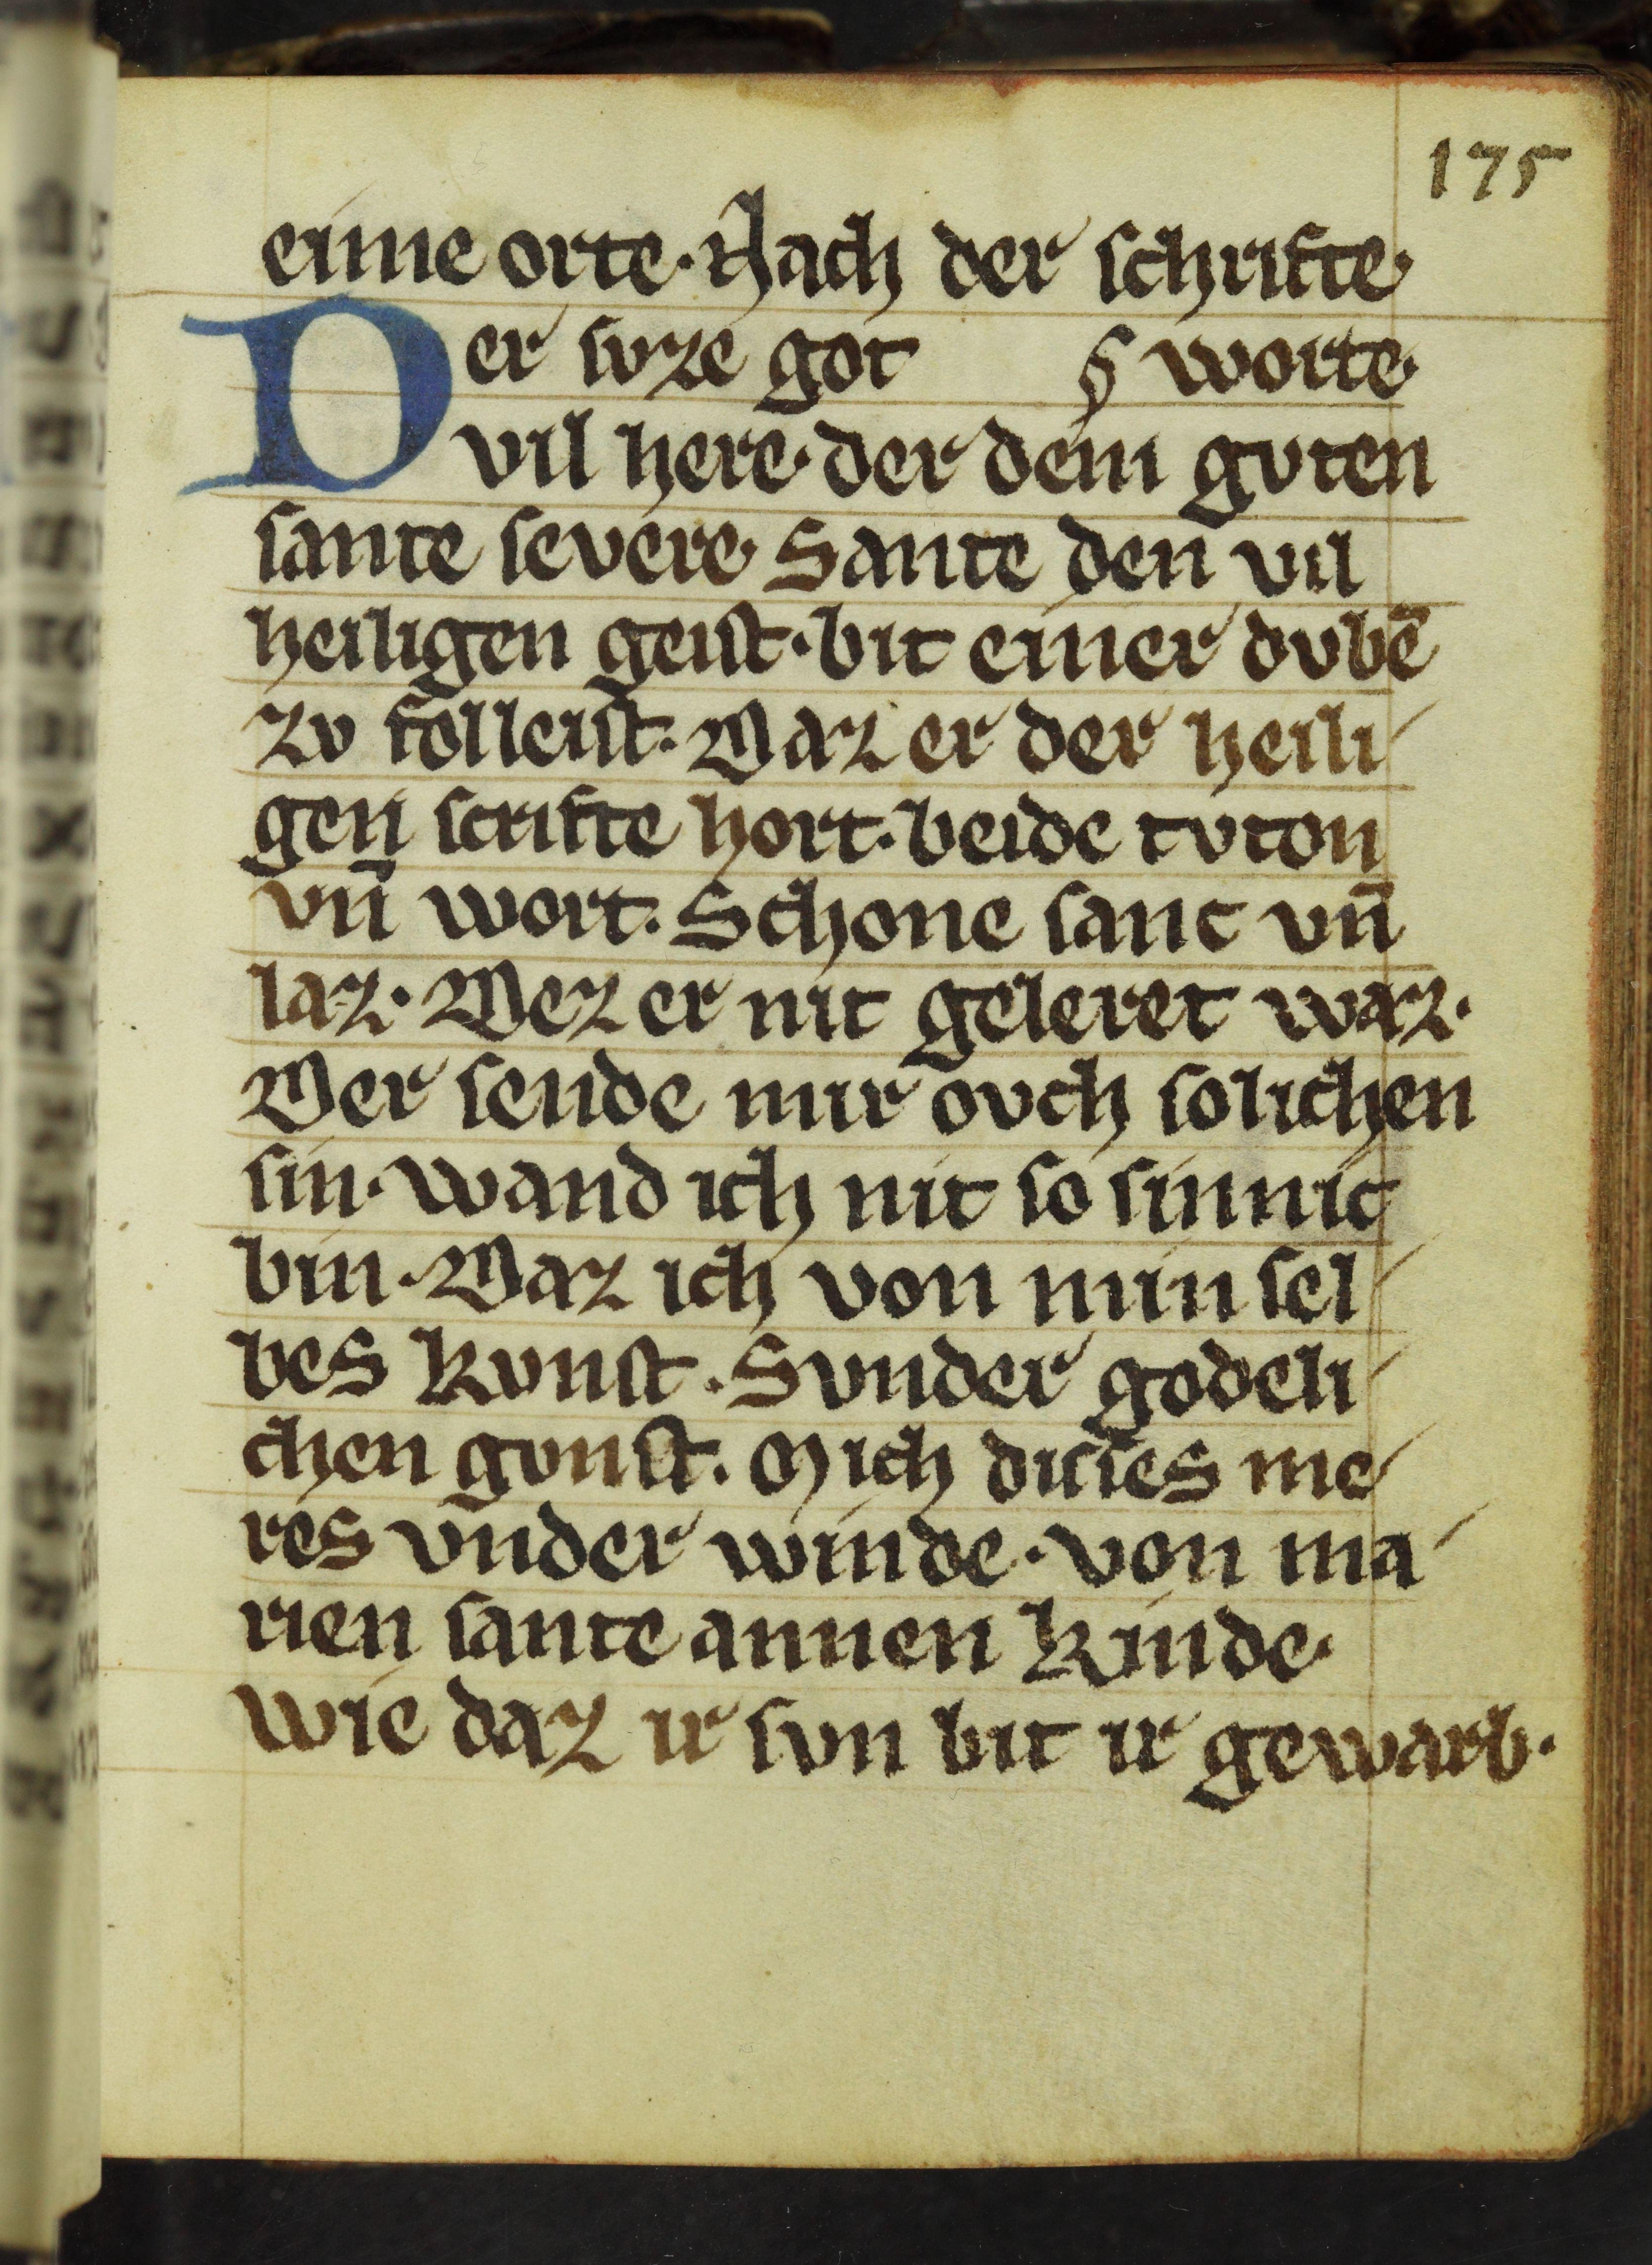 175
eime orte. Nach der schrifte.
Der svze got § worte.
vil here. der dem gvten
sante severe. Sante den vil
heiligen geist. bit einer dvbē
zv folleist. Daz er der heili
gen scrifte hort. beide tvton
vn̄ wort. Schone sanc vn̄
laz. Dez er nit geleret waz.
Der sende mir ovch solichen
sin. wand ich nit so sinnic
bin. Daz ich von min sel
bes kvnst. Svnder godeli
chen gvnst. Mich disses me
res vnder winde. von ma
rien sante annen kinde.
wie daz ir svn bit ir gewarb.